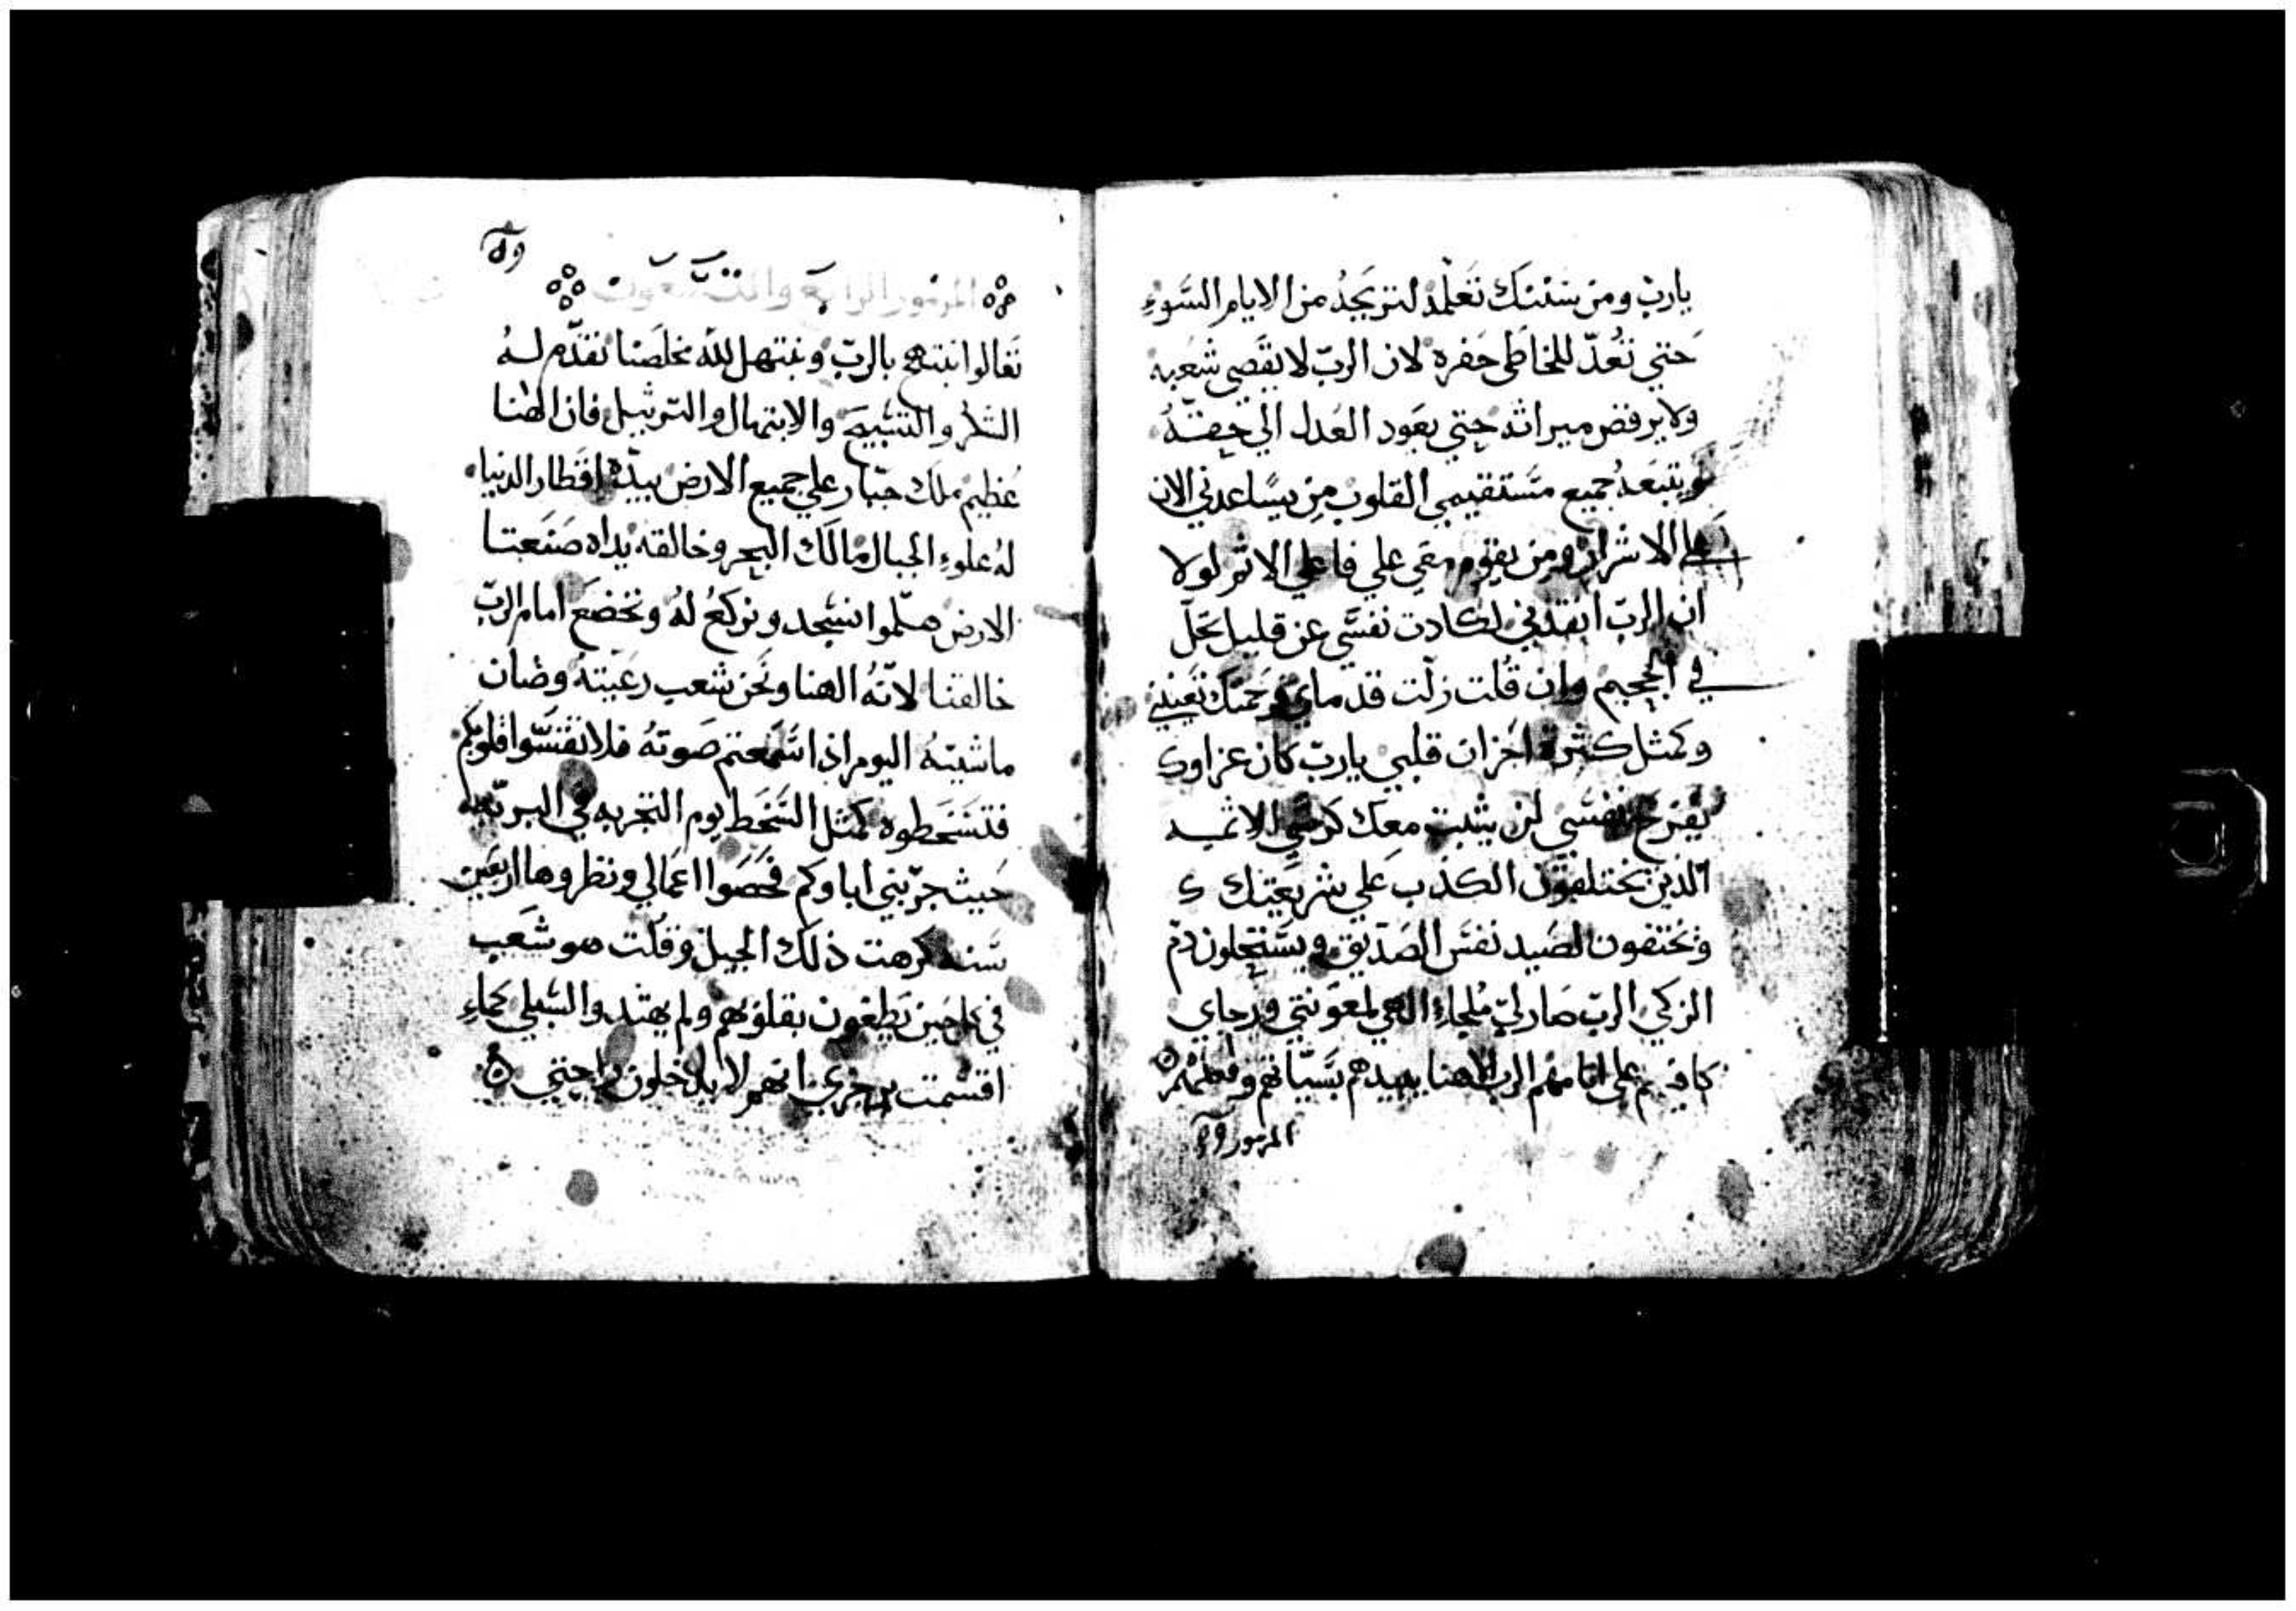 يارب ومن سنتك تعلمه لتريحه من الايام السوء
حتي تعد للخاطي حفره لان الرب لا يقصي شعبه
ولا يرفض ميراثه حتي يعود العدل الي حقه
ويتبعه جميع مستقيمي القلوب من يساعدني الان
علي الاشرار ومن يقوم معي علي فاعلي الاثم لولا
ان الرب انقذني لكادت نفسي عن قليل تحل
في الجحيم وان قلت زلت قدماي فرحمتك تعينني
وكمثل كثرة احزان قلبي يارب كان عزاوك
يفرح نفسي لن يثبت معك كرسي الاثمه
الذين يختلقون الكذب علي شريعتك
ويختفون لصيد نفس الصديق ويستحلون دم
الزكي الرب صار لي ملجاء الهي لمعونتي ورجاي
كافيهم علي اثامهم الرب الاهنا يبيدهم بسياتهم
المزمور
المزمور الرابع والتسعون
تعالوا نبتهج بالرب ونبتهل لله مخلصنا نقدم له
الشكر والتسبيح والابتهال والترتيل فان الهنا
عظيم ملك جبار علي جميع الارض بيده اقطار الدنيا
له علوء الجبال مالك البحر وخالقه يداه صنعتا
الارض هلموا نسجد ونركع له ونخضع امام الرب
خالقنا لانه الهنا ونحن شعب رعيته وضان
ماشيته اليوم اذا سمعتم صوته فلا تقسوا قلوبكم
فتسخطوه كمثل السخط يوم التجربه في البريه
حيث جربني اباوكم فحصوا اعمالي ونظروها اربعين
سنه كرهت ذلك الجيل وقلت هو شعب
في كل حين يطغون بقلوبهم ولم يهتدوا لسبلي كماء
اقسمت برجزي انهم لا يدخلون راحتي